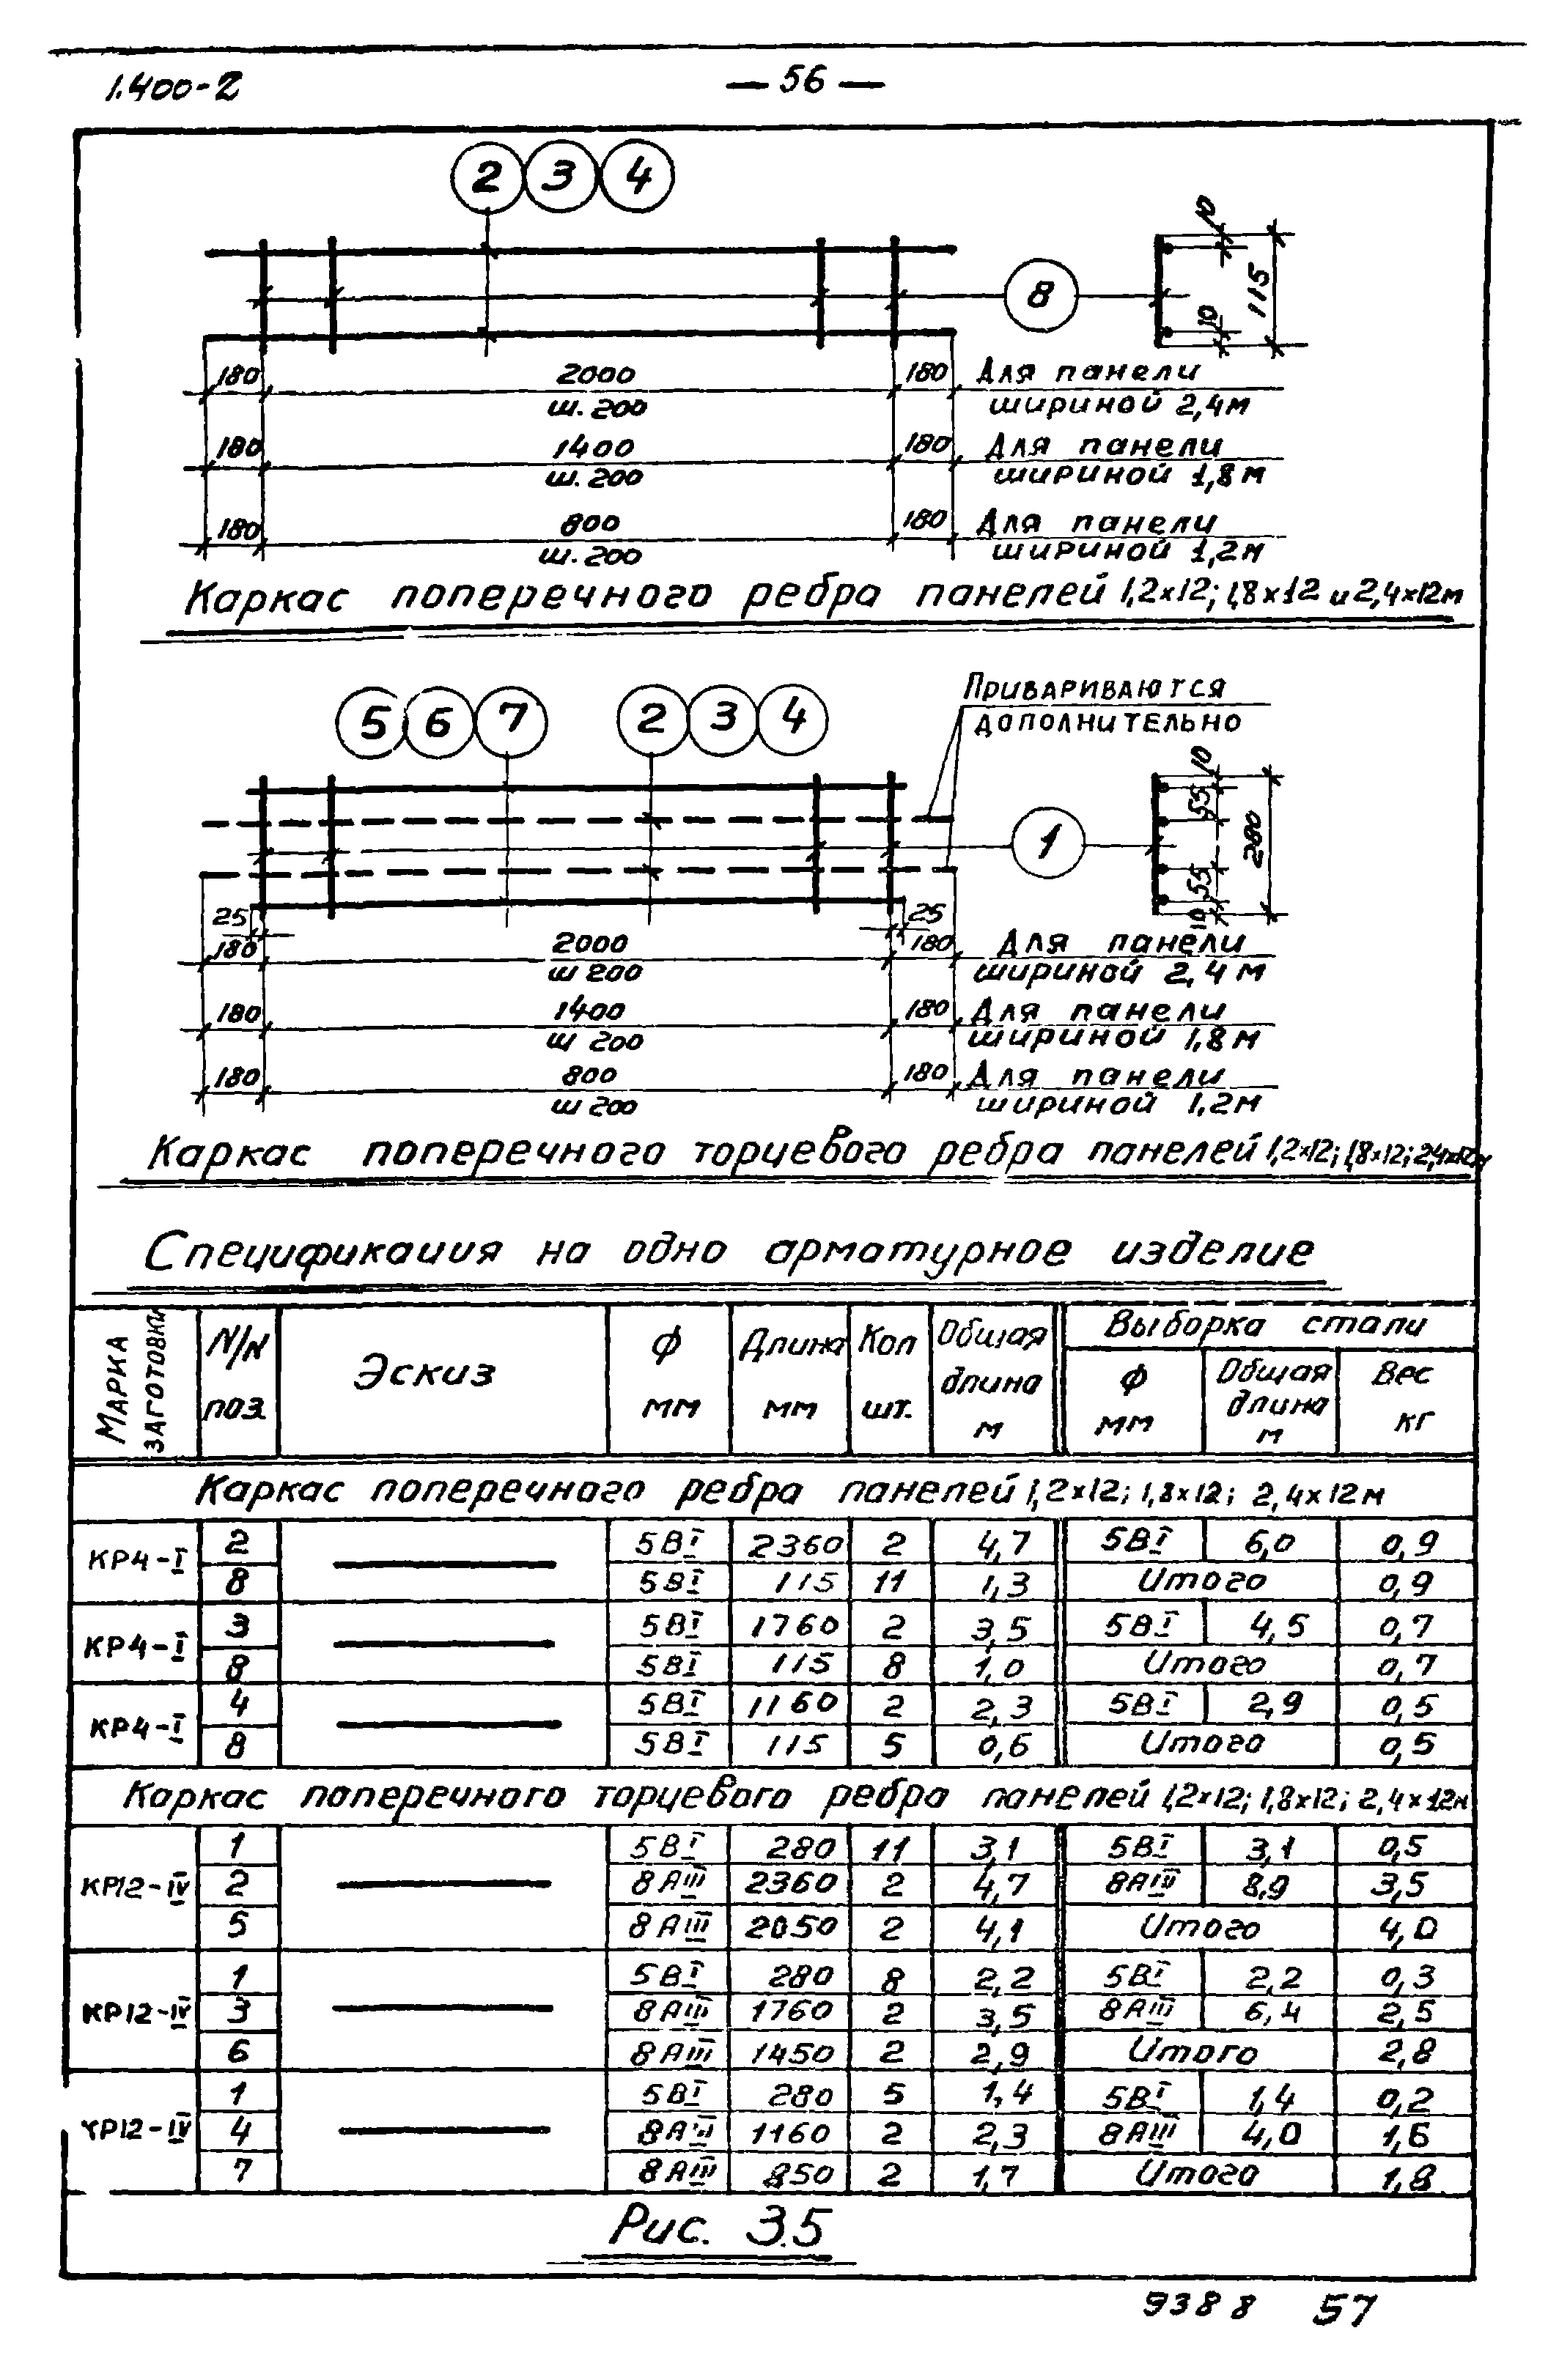 1.400-2
— 56 —
2 3 4
10
8
115
10
180 2000 180 Для панели
ш. 200 шириной 2,4м
180 1400 180 Для панели
ш. 200 шириной 1,8м
180 800 180 Для панели
ш. 200 шириной 1,2м
Каркас поперечного ребра панелей 1,2×12; 1,8×12 и 2,4×12м
Привариваются
дополнительно
5 6 7 2 3 4
10
55
1
280
55
10
25 25
180 2000 180 Для панели
ш 200 шириной 2,4м
180 1400 180 Для панели
ш 200 шириной 1,8м
180 800 180 Для панели
ш 200 шириной 1,2м
Каркас поперечного торцевого ребра панелей 1,2×12; 1,8×12; 2,4×12м
Спецификация на одно арматурное изделие
Марка заготовки N/N поз. Эскиз ф мм Длина мм Кол шт. Общая длина м Выборка стали
ф мм Общая длина м Вес кг
Каркас поперечного ребра панелей 1,2×12; 1,8×12; 2,4×12м
КР4-I 2 5ВI 2360 2 4,7 5ВI 6,0 0,9
8 5ВI 115 11 1,3 Итого 0,9
КР4-I 3 5ВI 1760 2 3,5 5ВI 4,5 0,7
8 5ВI 115 8 1,0 Итого 0,7
КР4-I 4 5ВI 1160 2 2,3 5ВI 2,9 0,5
8 5ВI 115 5 0,6 Итого 0,5
Каркас поперечного торцевого ребра панелей 1,2×12; 1,8×12; 2,4×12м
КР12-IV 1 5ВI 280 11 3,1 5ВI 3,1 0,5
2 8АIII 2360 2 4,7 8АIV 8,9 3,5
5 8АIII 2050 2 4,1 Итого 4,0
КР12-IV 1 5ВI 280 8 2,2 5ВI 2,2 0,3
3 8АIII 1760 2 3,5 8АIII 6,4 2,5
6 8АIII 1450 2 2,9 Итого 2,8
КР12-IV 1 5ВI 280 5 1,4 5ВI 1,4 0,2
4 8АIII 1160 2 2,3 8АIII 4,0 1,6
7 8АIII 850 2 1,7 Итого 1,8
Рис. 3.5
9388 57